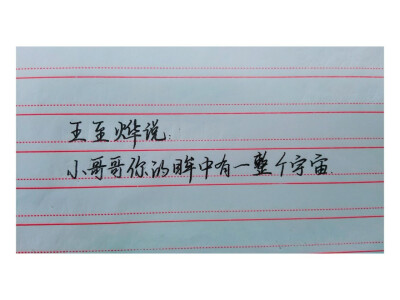 王至烨说:
小哥哥你的眸中有一整个宇宙.